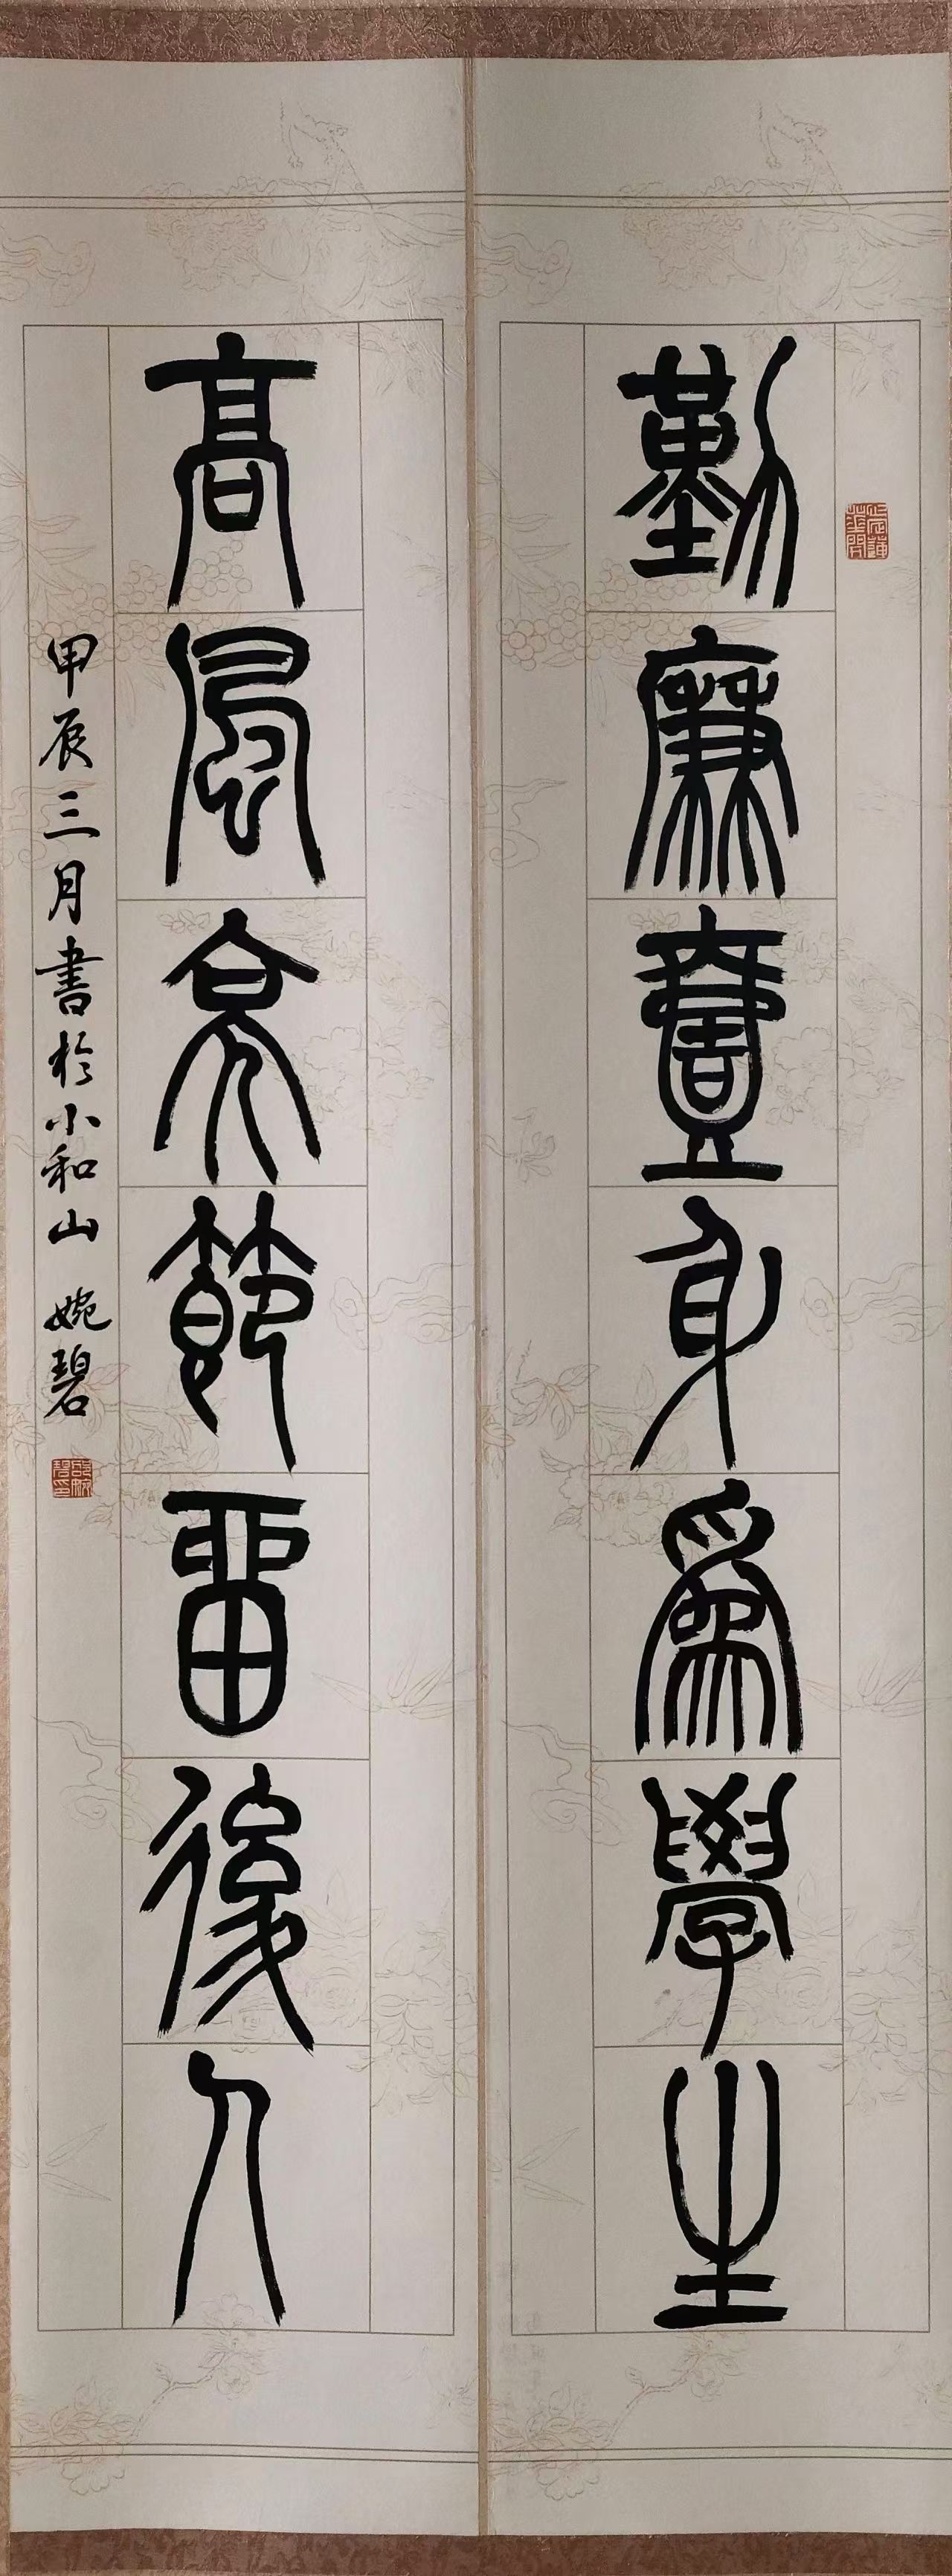 勤廉壹身爲學生
高風亮節畱後人
甲辰三月書於小和山 婉碧